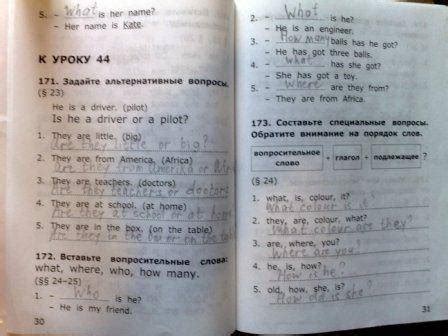 5. – What is her name?
– Her name is Kate.
К УРОКУ 44
171. Задайте альтернативные вопросы.
(§ 23)
He is a driver. (pilot)
Is he a driver or a pilot?
1. They are little. (big)
Are they little or big?
2. They are from America. (Africa)
Are they from Amerika or
3. They are teachers. (doctors)
Are they teachers or doctors
4. They are at school. (at home)
Are they at school or at home
5. They are in the box. (on the table)
Are they in the box or on the table
172. Вставьте вопросительные слова:
what, where, who, how many.
(§§ 24–25)
1. – Who is he?
– He is my friend.
30
2. – What is he?
– He is an engineer.
3. – How many balls has he got?
– He has got three balls.
4. – What has she got?
– She has got a toy.
5. – Where are they from?
– They are from Africa.
173. Составьте специальные вопросы.
Обратите внимание на порядок слов.
вопросительное слово + глагол + подлежащее ?
(§ 24)
1. what, is, colour, it?
What colour is it?
2. they, are, colour, what?
What colour are they?
3. are, where, you?
Where are you?
4. he, is, how?
How is he?
5. old, how, she, is?
How old is she?
31